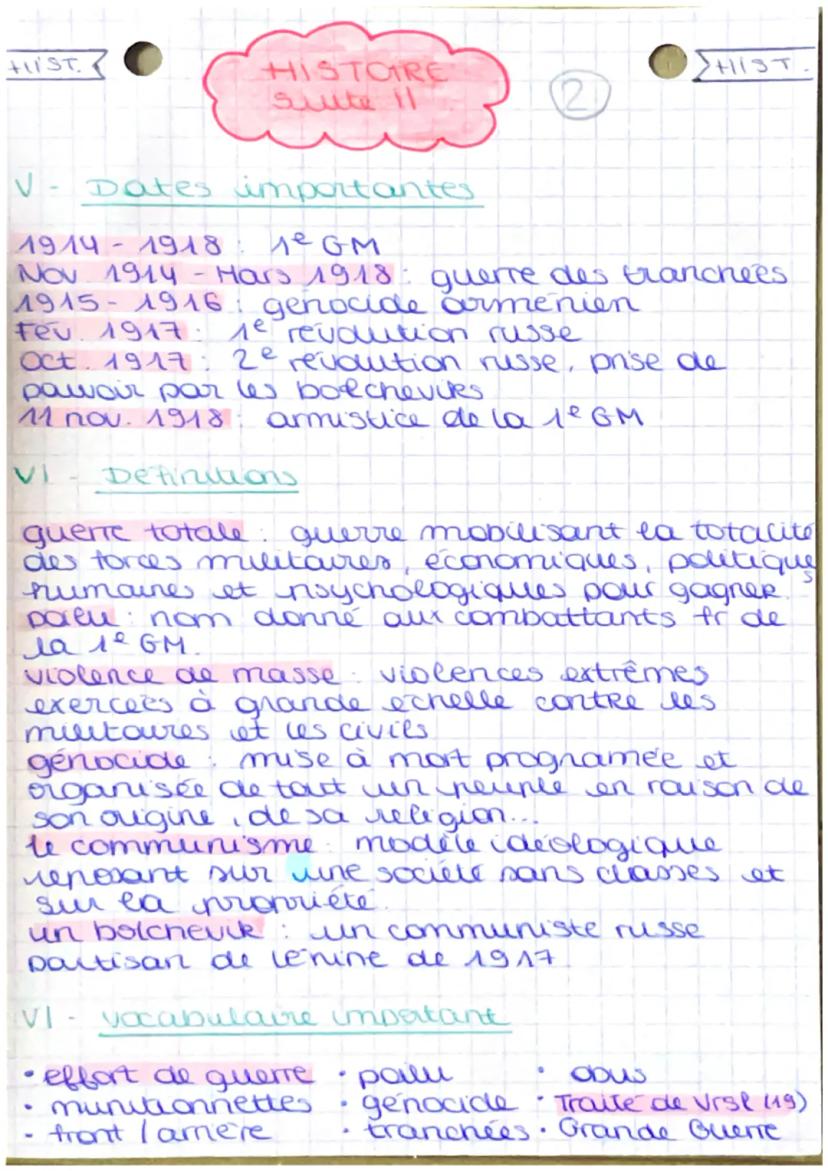 HIST.
HISTOIRE
suite 11
2
HIST.
V - Dates importantes
1914 - 1918 : 1e GM
Nov 1914 - Mars 1918 : guerre des tranchées
1915 - 1916 : génocide arménien
Fév. 1917 : 1e révolution russe
Oct. 1917 : 2e révolution russe, prise de
pouvoir par les bolcheviks
11 nov. 1918 : armistice de la 1e GM
VI - Définitions
guerre totale : guerre mobilisant la totalité
des forces militaires, économiques, politiques
humaines et psychologiques pour gagner.
poilu : nom donné aux combattants fr de
la 1e GM.
violence de masse : violences extrêmes
exercées à grande échelle contre les
militaires et les civils
génocide : mise à mort programée et
organisée de tout un peuple en raison de
son origine, de sa religion...
le communisme : modèle idéologique
reposant sur une société sans classes et
sur la propriété.
un bolchevik : un communiste russe
partisan de Lénine de 1917
VI - vocabulaire important
• effort de guerre • poilu • obus
• munitionnettes • génocide • Traité de Vrsl (19)
- front / arrière • tranchées • Grande Guerre